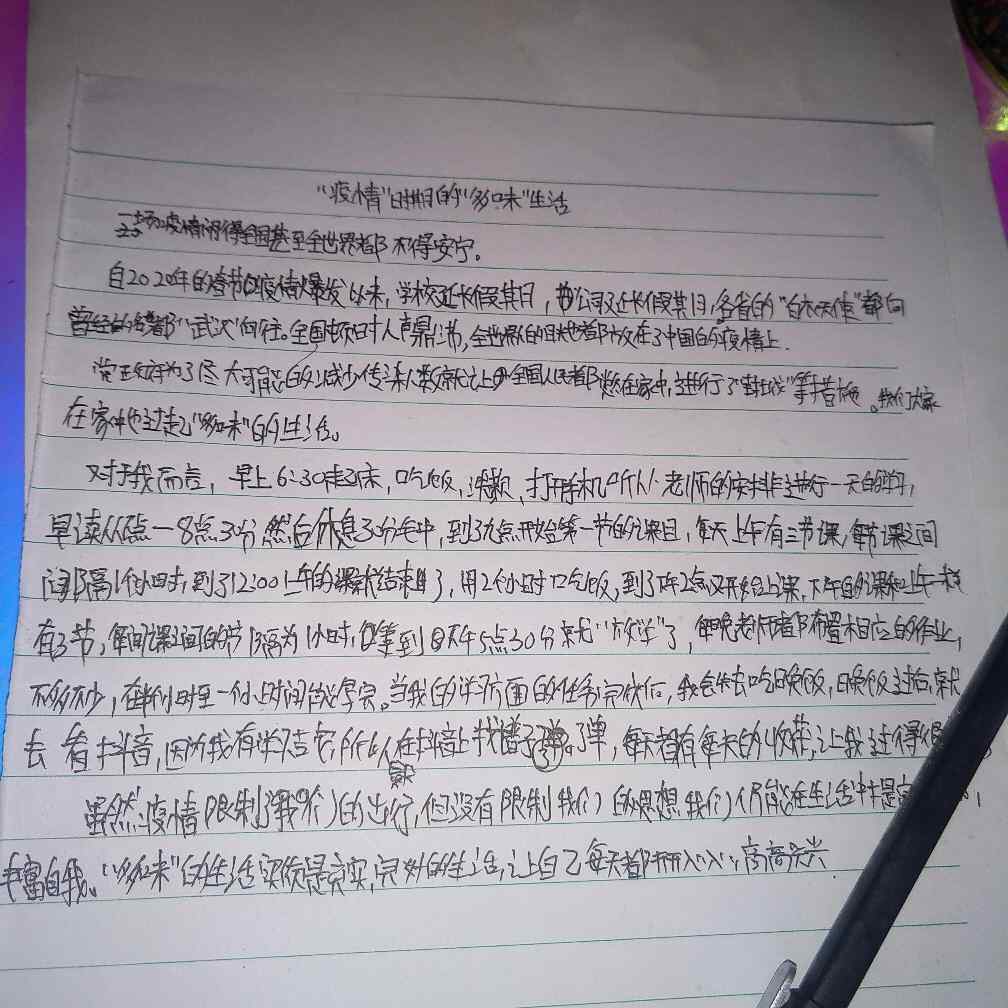 “疫情”时期的“多味”生活
一场疫情闹得全国甚至全世界都不得安宁。
自2020年的春节疫情爆发以来，学校延长假期，公司延长假期，各省的“白衣天使”都向
曾经的“武汉”向往。全国顿时人声鼎沸，全世界的目光都放在了中国的疫情上.
党正好为了尽大可能的减少传染人数就让全国人民都在家中，进行了“封城”等措施。我们大家
在家中也过起了“多味”的生活。
对于我而言，早上6:30起床，吃饭，洗漱，打开手机听从老师的安排进行一天的学习，
早读从点一8点30分然后休息30分钟，到了九点开始第一节的课目，每天上午有三节课，每节课之间
间隔1个小时，到了12:00上午的课就结束了，用2个小时吃饭，到了下午2点又开始上课，下午的课和上午一样
有3节，每节课之间的间隔为1小时，等到下午5点30分就“放学”了，每晚老师都布置相应的作业，
不多不少，在半小时至一小时间能写完。当我的学习方面的任务完成后，我会去吃晚饭，晚饭过后，就
去看抖音，因为我有学吉它，所以在抖音上找谱子弹，每天都有每天的收获，让我过得很
虽然疫情限制了我们的出行，但没有限制我们的思想，我们仍能在生活中提高
丰富自我。“多味”的生活实质是真实，完好的生活，让自己每天都开心，高高兴兴